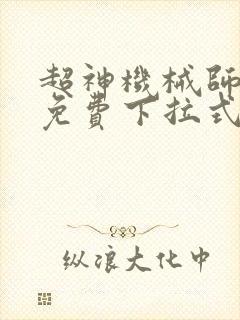 超神機械師
免費下拉式
纵浪大化中